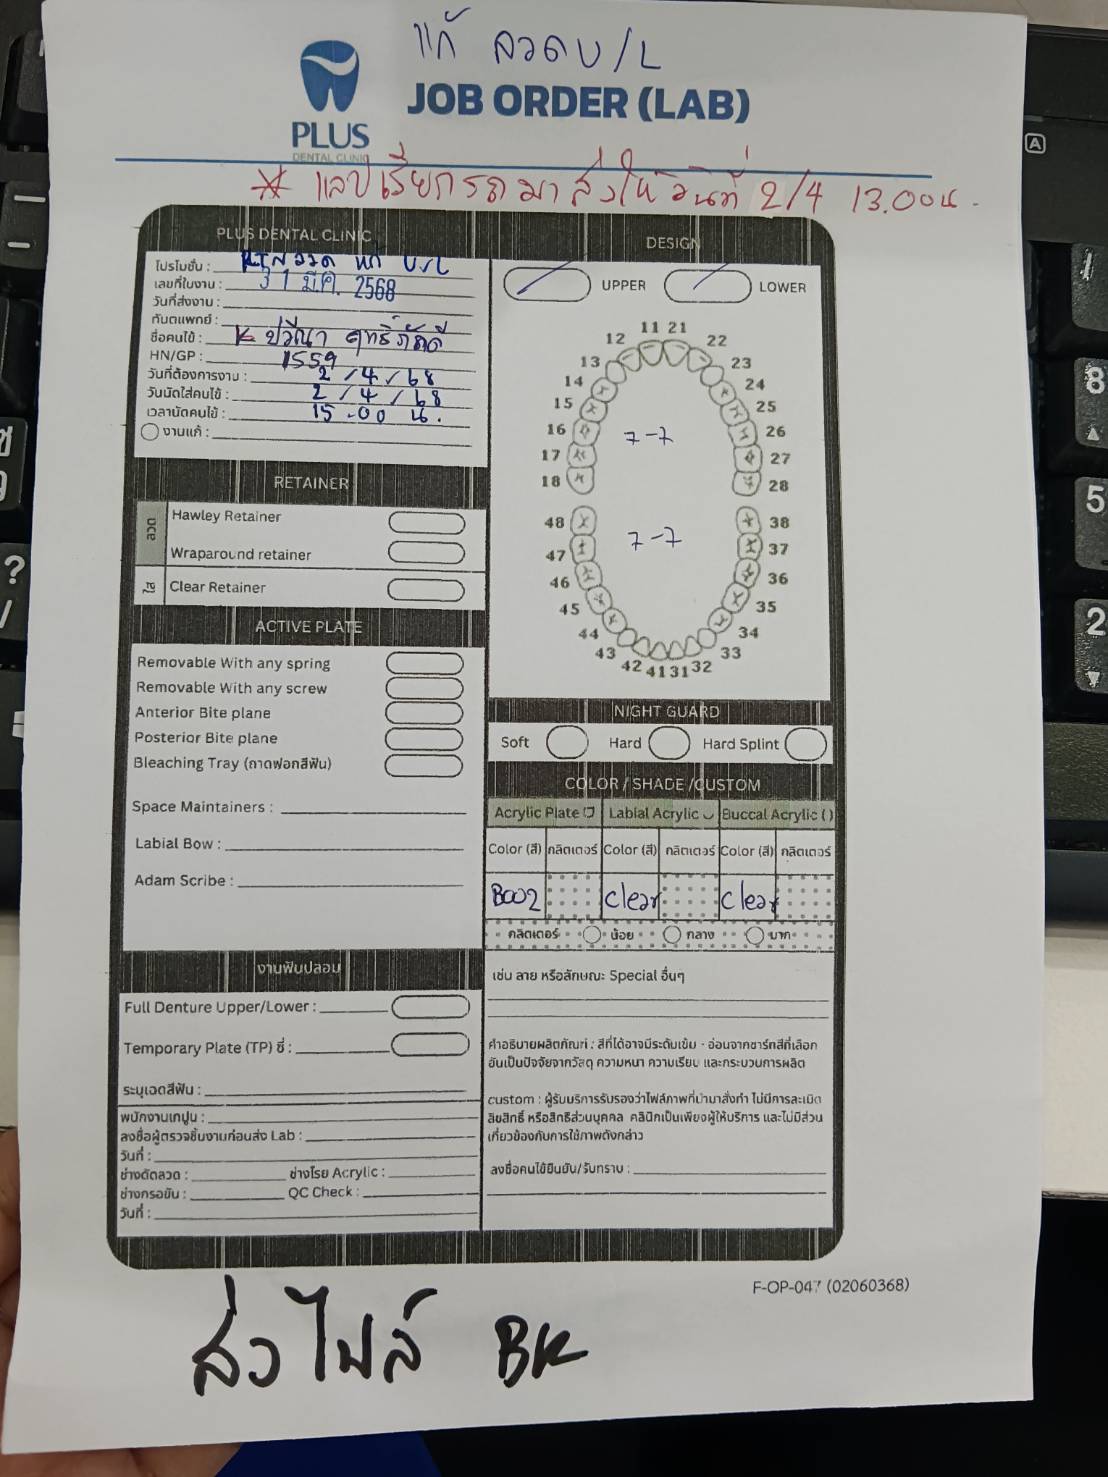 แก้ ลวด U/L
PLUS
DENTAL CLINIC
JOB ORDER (LAB)
* แลปเรียกรถมาส่งให้วันที่ 2/4 13.00น.
PLUS DENTAL CLINIC
โปรโมชั่น : RTลวด แก้ U/L
เลขที่ใบงาน :
31 มี.ค. 2568
วันที่ส่งงาน :
ทันตแพทย์ :
ชื่อคนไข้ : K ปวีณา ฤทธิ์ภักดี
HN/GP : 1559
วันที่ต้องการงาน : 2/4/68
วันนัดใส่คนไข้ : 2/4/68
เวลานัดคนไข้ : 15.00 น.
งานแก้ :
RETAINER
ลวด
Hawley Retainer
Wraparound retainer
ใส
Clear Retainer
ACTIVE PLATE
Removable With any spring
Removable With any screw
Anterior Bite plane
Posterior Bite plane
Bleaching Tray (ถาดฟอกสีฟัน)
Space Maintainers :
Labial Bow :
Adam Scribe :
งานฟันปลอม
Full Denture Upper/Lower :
Temporary Plate (TP) ซี่ :
ระบุเฉดสีฟัน :
พนักงานเทปูน :
ลงชื่อผู้ตรวจชิ้นงานก่อนส่ง Lab :
วันที่ :
ช่างดัดลวด : ช่างโรย Acrylic :
ช่างกรอขัน : QC Check :
วันที่ :
DESIGN
UPPER LOWER
11 21
12 22
13 23
14 24
15 25
16 7-7 26
17 27
18 28
48 38
47 7-7 37
46 36
45 35
44 34
43 33
42 41 31 32
NIGHT GUARD
Soft Hard Hard Splint
COLOR / SHADE /CUSTOM
Acrylic Plate Labial Acrylic Buccal Acrylic ( )
Color (สี) กลิตเตอร์ Color (สี) กลิตเตอร์ Color (สี) กลิตเตอร์
B002 Clear Clear
กลิตเตอร์ น้อย กลาง มาก
เช่น ลาย หรือลักษณะ Special อื่นๆ
คำอธิบายผลิตภัณฑ์ : สีที่ได้อาจมีระดับเข้ม - อ่อนจากชาร์ทสีที่เลือก
อันเป็นปัจจัยจากวัสดุ ความหนา ความเรียบ และกระบวนการผลิต
custom : ผู้รับบริการรับรองว่าไฟล์ภาพที่นำมาสั่งทำ ไม่มีการละเมิด
ลิขสิทธิ์ หรือสิทธิส่วนบุคคล คลินิกเป็นเพียงผู้ให้บริการ และไม่มีส่วน
เกี่ยวข้องกับการใช้ภาพดังกล่าว
ลงชื่อคนไข้ยืนยัน/รับทราบ :
F-OP-047 (02060368)
ส่งไฟล์ BK